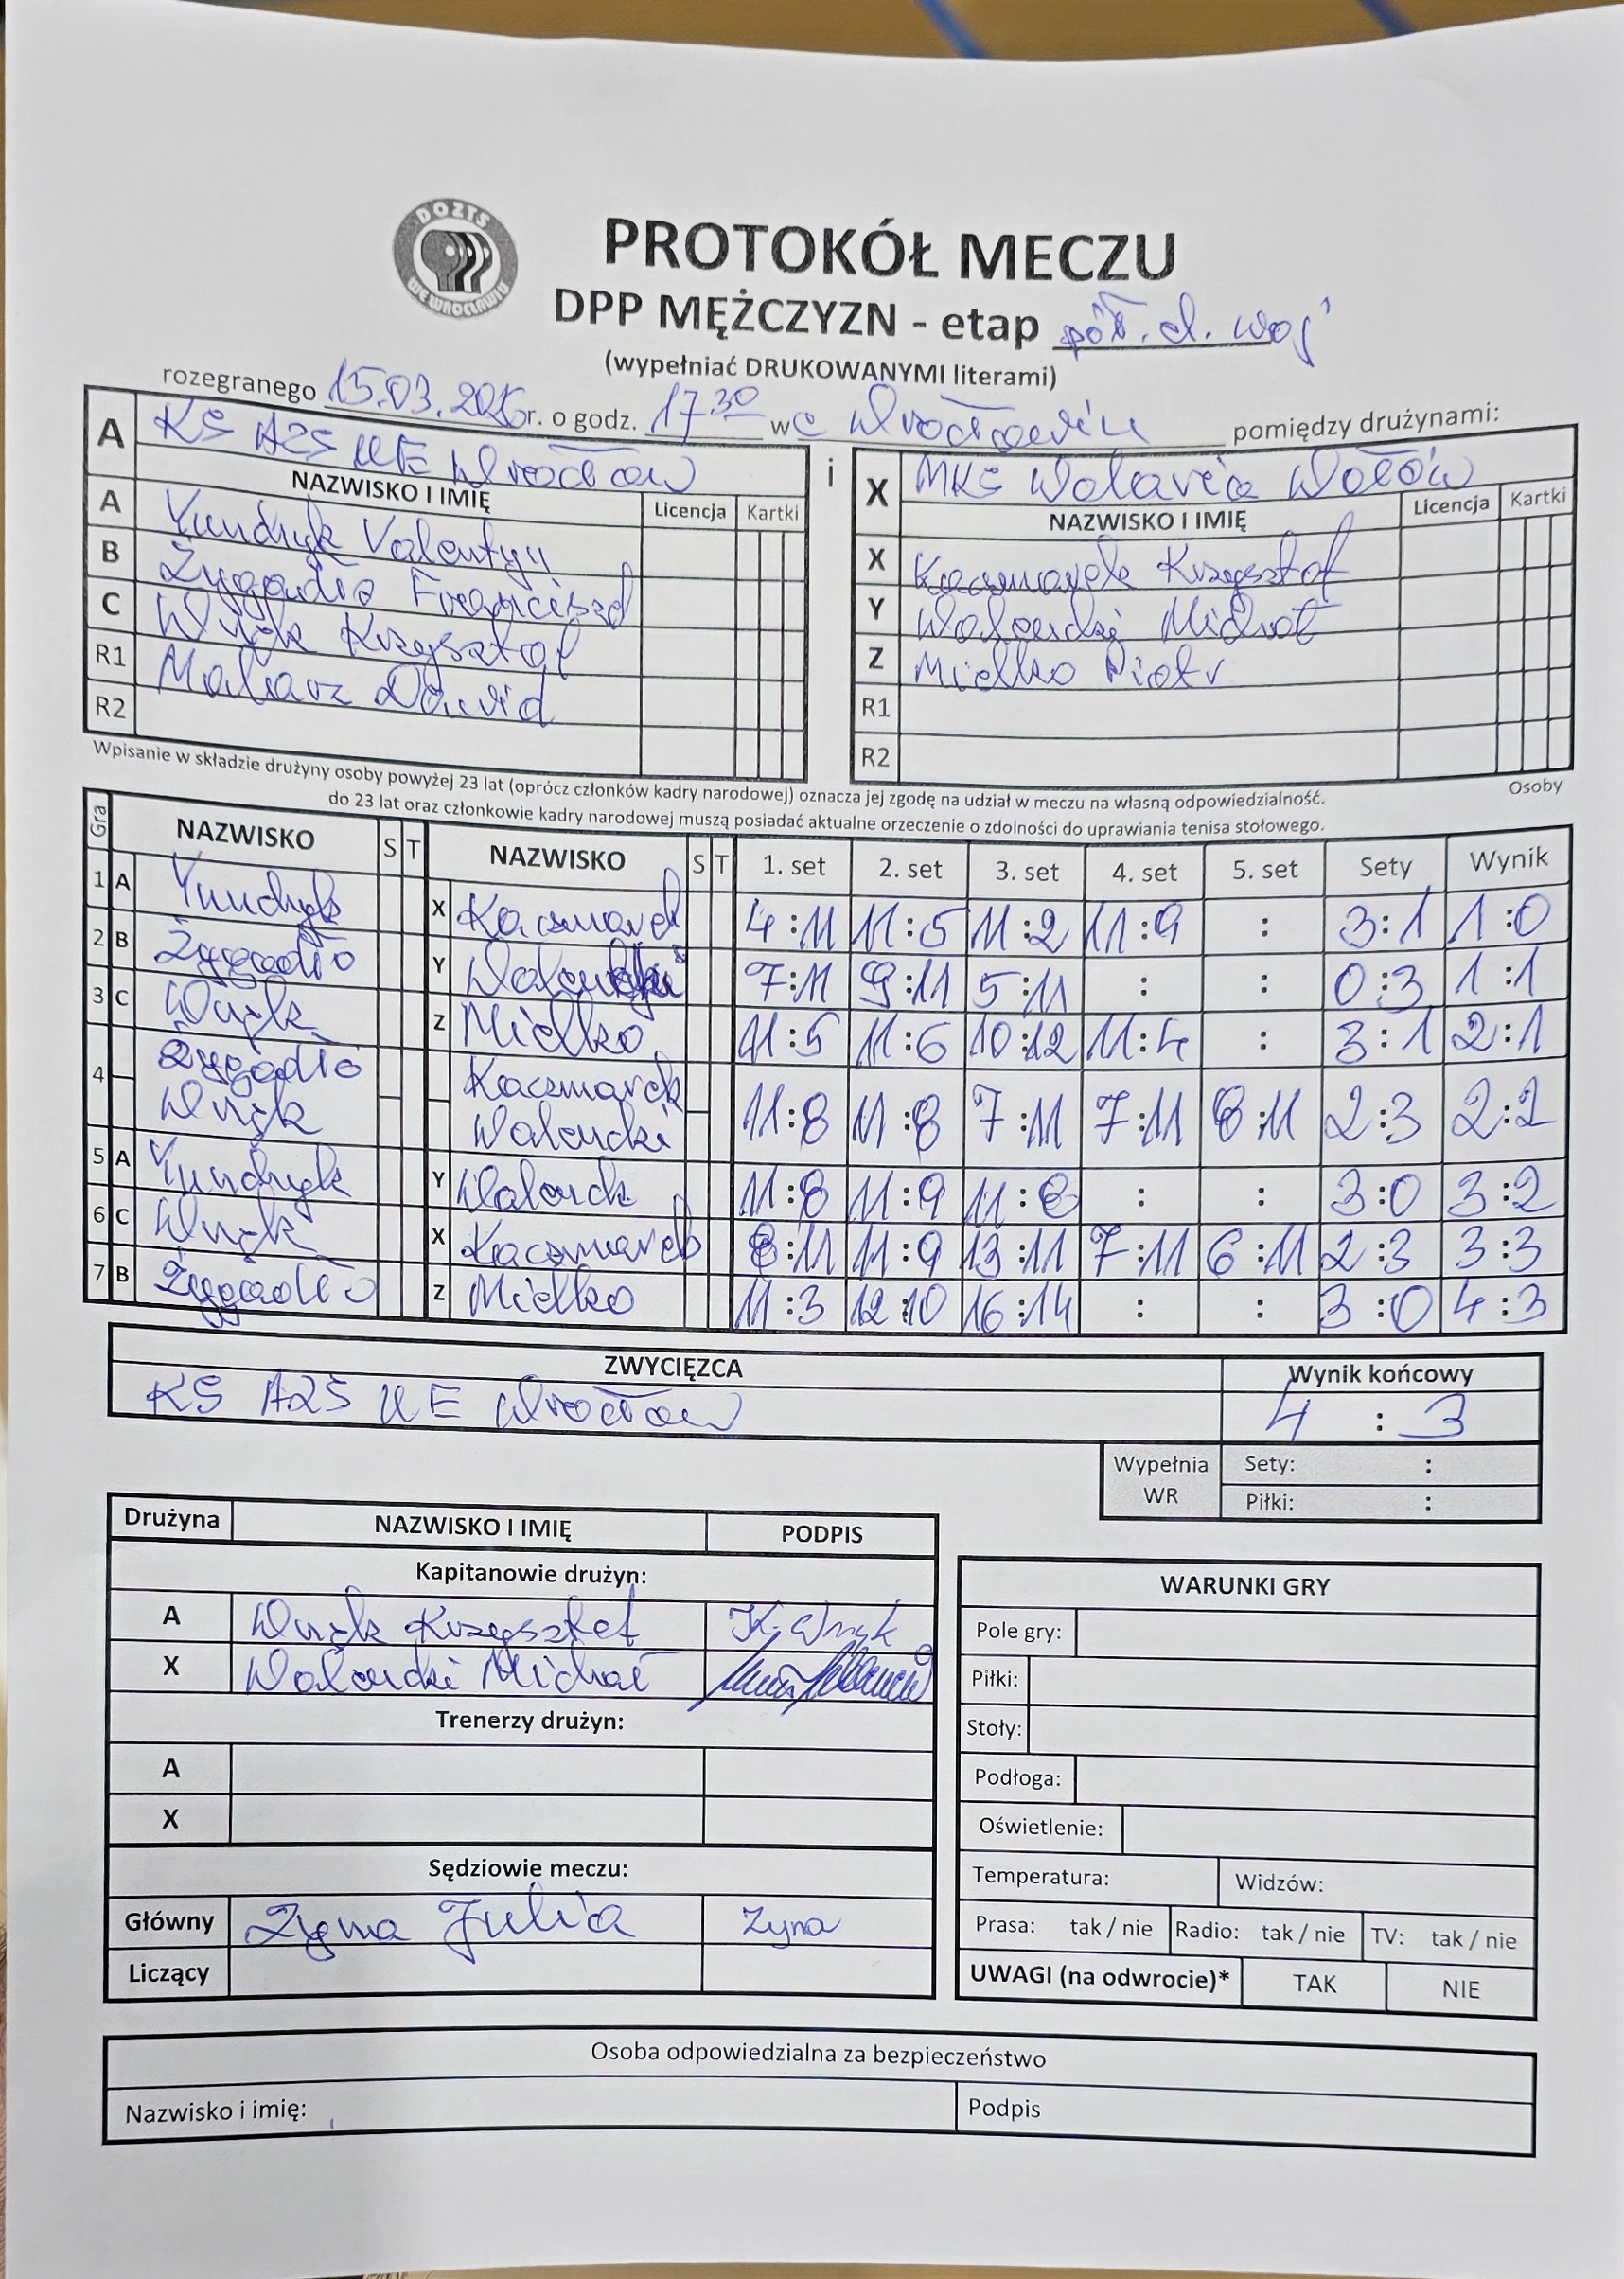 DOZTS
WE WROCŁAWIU
PROTOKÓŁ MECZU
DPP MĘŻCZYZN - etap pół. d. woj
(wypełniać DRUKOWANYMI literami)
rozegranego 15.03. r. o godz. 17 30 we Wrocławiu pomiędzy drużynami:
A KS AZS UE Wrocław i X MKS Wołów
NAZWISKO I IMIĘ Licencja Kartki NAZWISKO I IMIĘ Licencja Kartki
A Yundryk Valentyn X Kaczmarek Krzysztof
B Żygadło Franciszek Y Michał
C Wnęk Krzysztof Z Mielko Piotr
R1 Malarz Dawid R1
R2 R2
Wpisanie w składzie drużyny osoby powyżej 23 lat (oprócz członków kadry narodowej) oznacza jej zgodę na udział w meczu na własną odpowiedzialność. Osoby
do 23 lat oraz członkowie kadry narodowej muszą posiadać aktualne orzeczenie o zdolności do uprawiania tenisa stołowego.
Gra NAZWISKO S T NAZWISKO S T 1. set 2. set 3. set 4. set 5. set Sety Wynik
1 A Yundryk X Kaczmarek 4:11 11:5 11:2 11:9 : 3:1 1:0
2 B Żygadło Y 7:11 9:11 5:11 : : 0:3 1:1
3 C Wnęk Z Mielko 11:5 11:6 10:12 11:4 : 3:1 2:1
4 Żygadło Kaczmarek 11:8 11:8 7:11 7:11 8:11 2:3 2:2
Wnęk
5 A Yundryk Y 11:8 11:9 11:8 : : 3:0 3:2
6 C Wnęk X Kaczmarek 8:11 11:9 13:11 7:11 6:11 2:3 3:3
7 B Żygadło Z Mielko 11:3 12:10 16:14 : : 3:0 4:3
ZWYCIĘZCA Wynik końcowy
KS AZS UE Wrocław 4 : 3
Wypełnia WR Sety: :
Piłki: :
Drużyna NAZWISKO I IMIĘ PODPIS
Kapitanowie drużyn:
A Wnęk Krzysztof K. Wnęk
X Michał
Trenerzy drużyn:
A
X
Sędziowie meczu:
Główny Zyma Julia Zyma
Liczący
WARUNKI GRY
Pole gry:
Piłki:
Stoły:
Podłoga:
Oświetlenie:
Temperatura: Widzów:
Prasa: tak / nie Radio: tak / nie TV: tak / nie
UWAGI (na odwrocie)* TAK NIE
Osoba odpowiedzialna za bezpieczeństwo
Nazwisko i imię: Podpis